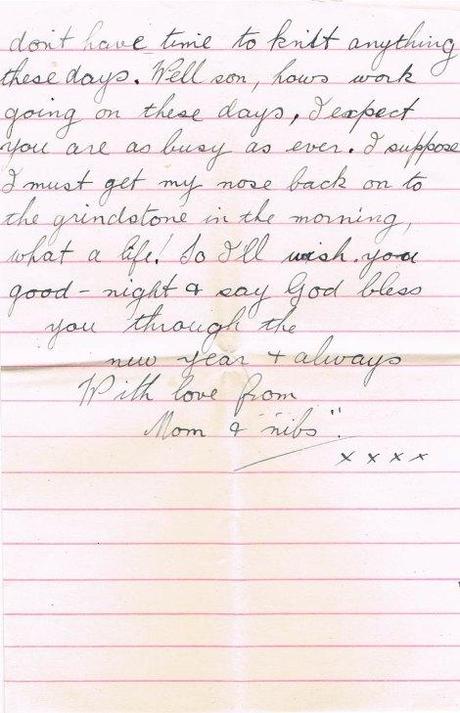 don't have time to knitt anything
these days. Well son, hows work
going on these days, I expect
you are as busy as ever. I suppose
I must get my nose back on to
the grindstone in the morning,
what a life! So I'll wish you
good-night & say God bless
you through the
new year + always
With love from
Mom & "nibs".
x x x x